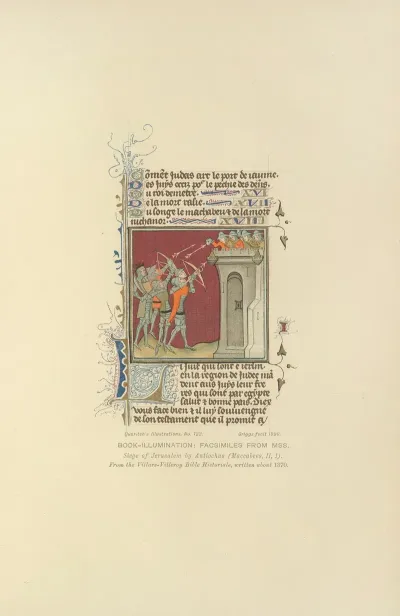 Cōmēt Judas art le port de iaume.
es Juys occis po² le pechie des
u roi demetre. XVI
e la mort raſie. XVII
u ſonge le machabeu & de la mort
nichanor. XVIII
I
Juif qui ſont e
en la region de Judee
aus Juys leur fre
res qui ſont par egypte
ſalut & bonne pais. Diex
vous face bien & il luy ſouuiengne
de ſon teſtament que il promiſt
Quaritch's Illustrations, No.
Griggs facit
BOOK-ILLUMINATION: FACSIMILES FROM MSS.
Siege of Jerusalem by Antiochus (Maccabees, II, 1).
From the Villars-Villeroy Bible Historiale, written about 1370.